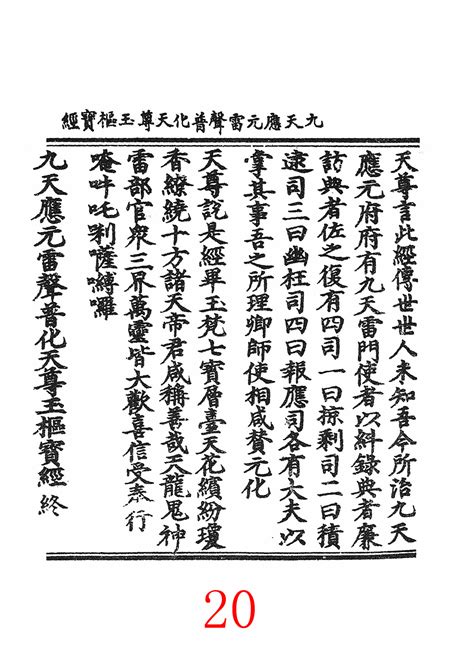 九天應元雷聲普化天尊玉樞寶經
天尊言此經傳世世人未知吾今所治九天
應元府府有九天雷門使者以糾錄典者廉
訪典者佐之復有四司一曰掠剩司二曰積
逮司三曰幽枉司四曰報應司各有大夫以
掌其事吾之所理卿師使相咸贊元化
天尊說是經畢玉梵七寶層臺天花繽紛瓊
香繚繞十方諸天帝君咸稱善哉天龍鬼神
雷部官眾三界萬靈皆大歡喜信受奉行
唵吽吒唎薩嚩囉
九天應元雷聲普化天尊玉樞寶經 終
20